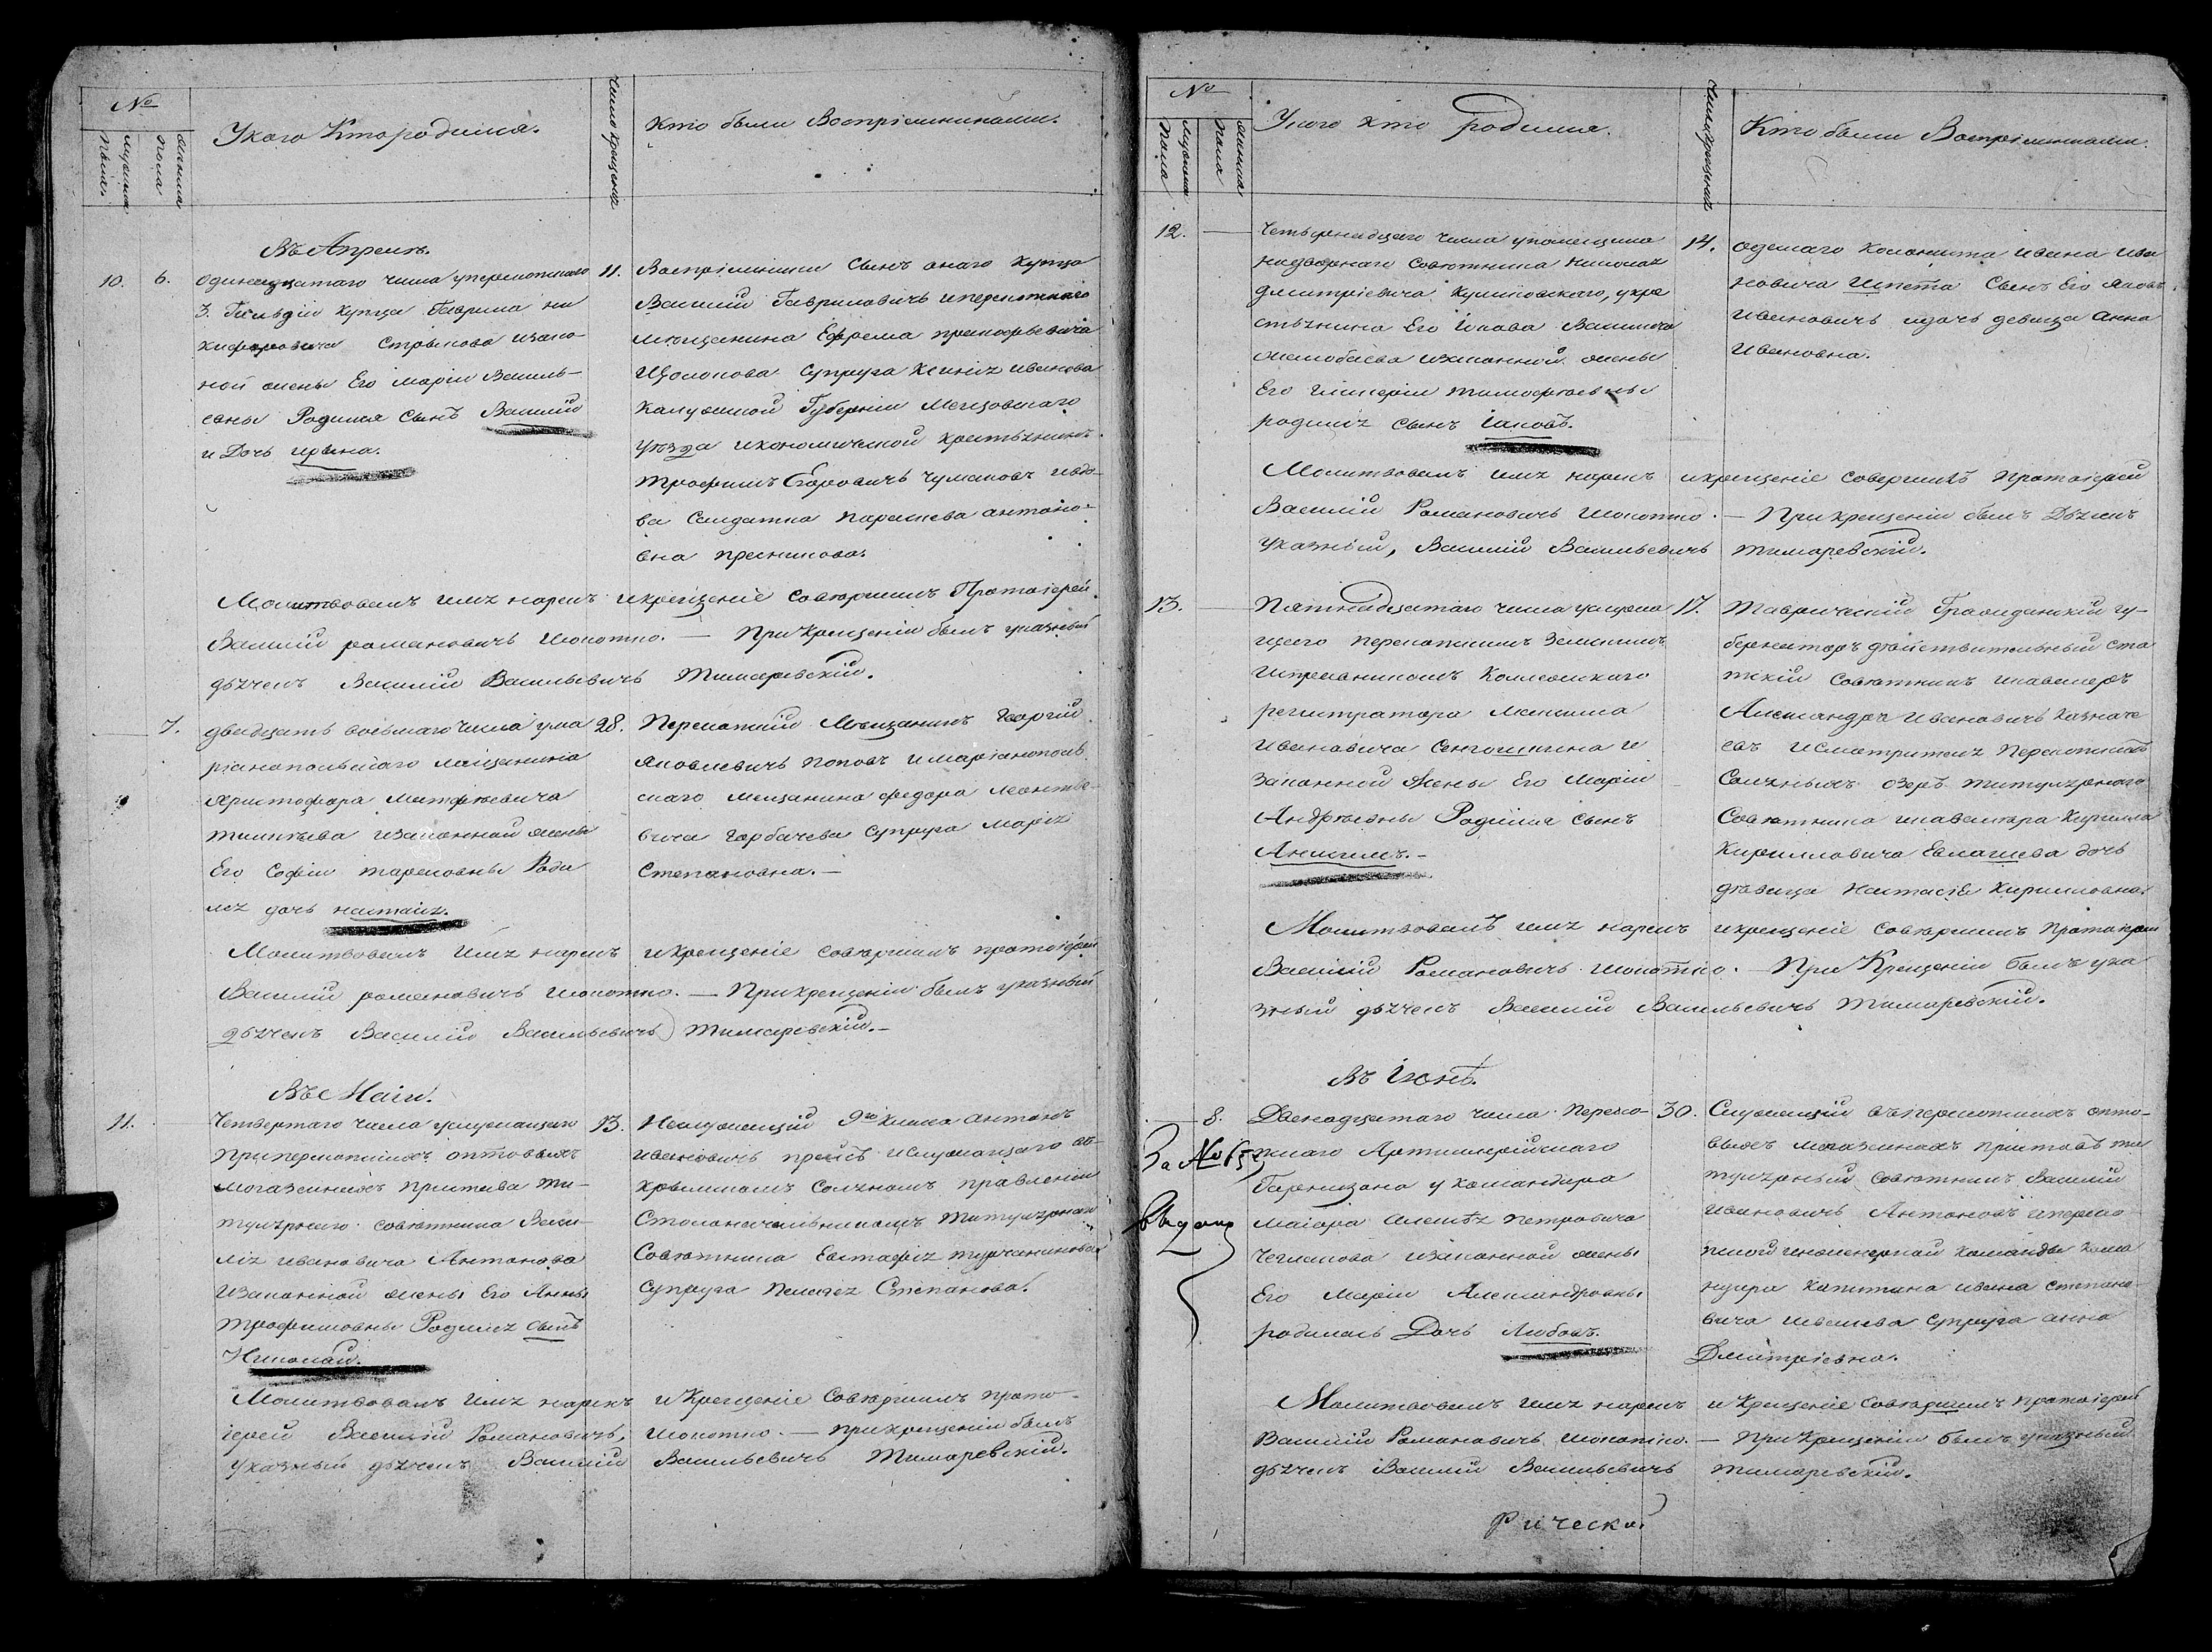 №
Мужска пола.
Женска пола
У кого Кто родился.
Число крещенія
Кто были Воспріемниками.
Въ Апреле.
10. 6.
одинадцатаго числа уперекопскаго
3. Гильдіи купца Гаврила Ни
кифоровича Стрыкова изако
ной жены Его Маріи Василь-
евны Родился Сынъ Василій
и Дочь Ирына.
11.
Воспріемники Сынъ онаго Купца
Василій Гавриловичъ иперекопскаго
мещанина Ефрема
Супруга Ксенія иванова
калужской Губерніи Мещовскаго
уезда икономической крестьянинъ
трофимъ Егоровичъ Чумаковъ ивдо-
ва Салдатка параскева антоно-
вна
Молитвовалъ имя нарекъ икрещеніе Совершилъ Протоіерей
Василій романовичъ Шокотко. — При Крещеніи былъ указный
дьячекъ Василій Васильевичъ Тимаревскій.
7.
двадцать восьмаго числа у ма
ріанопольскаго мещанина
Христофора Матфеевича
изаконной жены
Его Софіи Роди
лся дочь настасія.
28.
Перекопскій Мещанинъ Георгій
Яковлевичъ поповъ имаріанополь
скаго мещанина Федора Леонтье-
вича Горбачева Супруга Марія
Степановна. —
Молитвовалъ имя нарекъ икрещеніе совершилъ протоіерей
Василій романовичъ Шокотко. — При крещеніи былъ указный
дьячекъ Василій Васильевичъ Тимаревскій. —
Въ Маіи.
11.
Четвертаго числа услужащаго
приперекопскихъ оптовыхъ
могазейнахъ Пристава ти-
тулярнаго советника Васи-
лія ивановича Антонова
изаконной жены Его Анны
трофимовны Родился сынъ
Николай.
13.
Неслужащій 9го класа антонъ
ивановичъ ислужащаго въ
крымскомъ Соляномъ правленіи
Столоначальникомъ титулярнаго
Советника Евстафія турчанинова
супруга Пелагея Степанова.
Молитвовалъ имя нарекъ и Крещеніе Совершилъ прото-
іерей Василій Романовичъ, Шокотко. — При крещеніи былъ
указный дьячекъ Василій Васильевичъ Тимаревскій.
№
Мужска Пола
Женска Пола
У кого кто родился.
Число крещенія
Кто были Воспріемниками.
12.
Четырнадцаго числа упомещика
надворнаго Советника Николая
дмитріевича Куликовскаго, укре
стьянина Его Іакова Василича
изаконной жены
Его тимофеевны
родился сынъ Іаковъ.
14.
ивана ива
новича Сынъ Его Яковъ
ивановичъ идочь девица анна
ивановна.
Молитвовалъ имя нарекъ икрещеніе совершилъ протоіерей
Василій Романовичъ Шокотко. — При крещеніи былъ Дьячекъ
указный, Василій Васильевичъ Тимаревскій.
13.
Пятнадцатаго числа услужа
щаго перекопскимъ Земскимъ
Исправникомъ Колежскаго
регистратора Максима
ивановича и
законной жены Его Маріи
Андреевны Родился сынъ

17.
Таврическій Гражданскій гу-
бернаторъ действительный ста
тскій советникъ икавалеръ
Александръ ивановичъ Казначе
евъ исмотрителя Перекопскихъ
Соляныхъ озеръ титулярнаго
Советника икавалера Кирилла
Кирилловича Евлашева дочь
девица Настасія Кирилловна.
Молитвовалъ имя нарекъ икрещеніе совершилъ протоіерей
Василій Романовичъ Шокотко. — При Крещеніи былъ ука
зный дьячекъ Василій Васильевичъ Тимаревскій.
Въ Іюне.
8.
За №
выдана
Двенадцатаго числа Переко-
пскаго Артиллерійскаго
Гарнизона у командира
Маіора Алексея Петровича
Чеглакова изаконной жены
Его Маріи Александровны
родилась Дочь Любовь.
30.
Служащій въперекопскихъ опто-
выхъ могазейнахъ приставъ ти
тулярный советникъ Василій
ивановичъ Антоновъ иперекоп
пской инженерной команды кома
ндира Капитана ивана степано-
вича супруга анна
Дмитріевна.
Молитвовалъ имя нарекъ и Крещеніе Совершилъ протоіерей
Василій Романовичъ Шокотко. — При Крещеніи былъ указный
дьячекъ Василій Васильевичъ Тимаревскій.
рическа